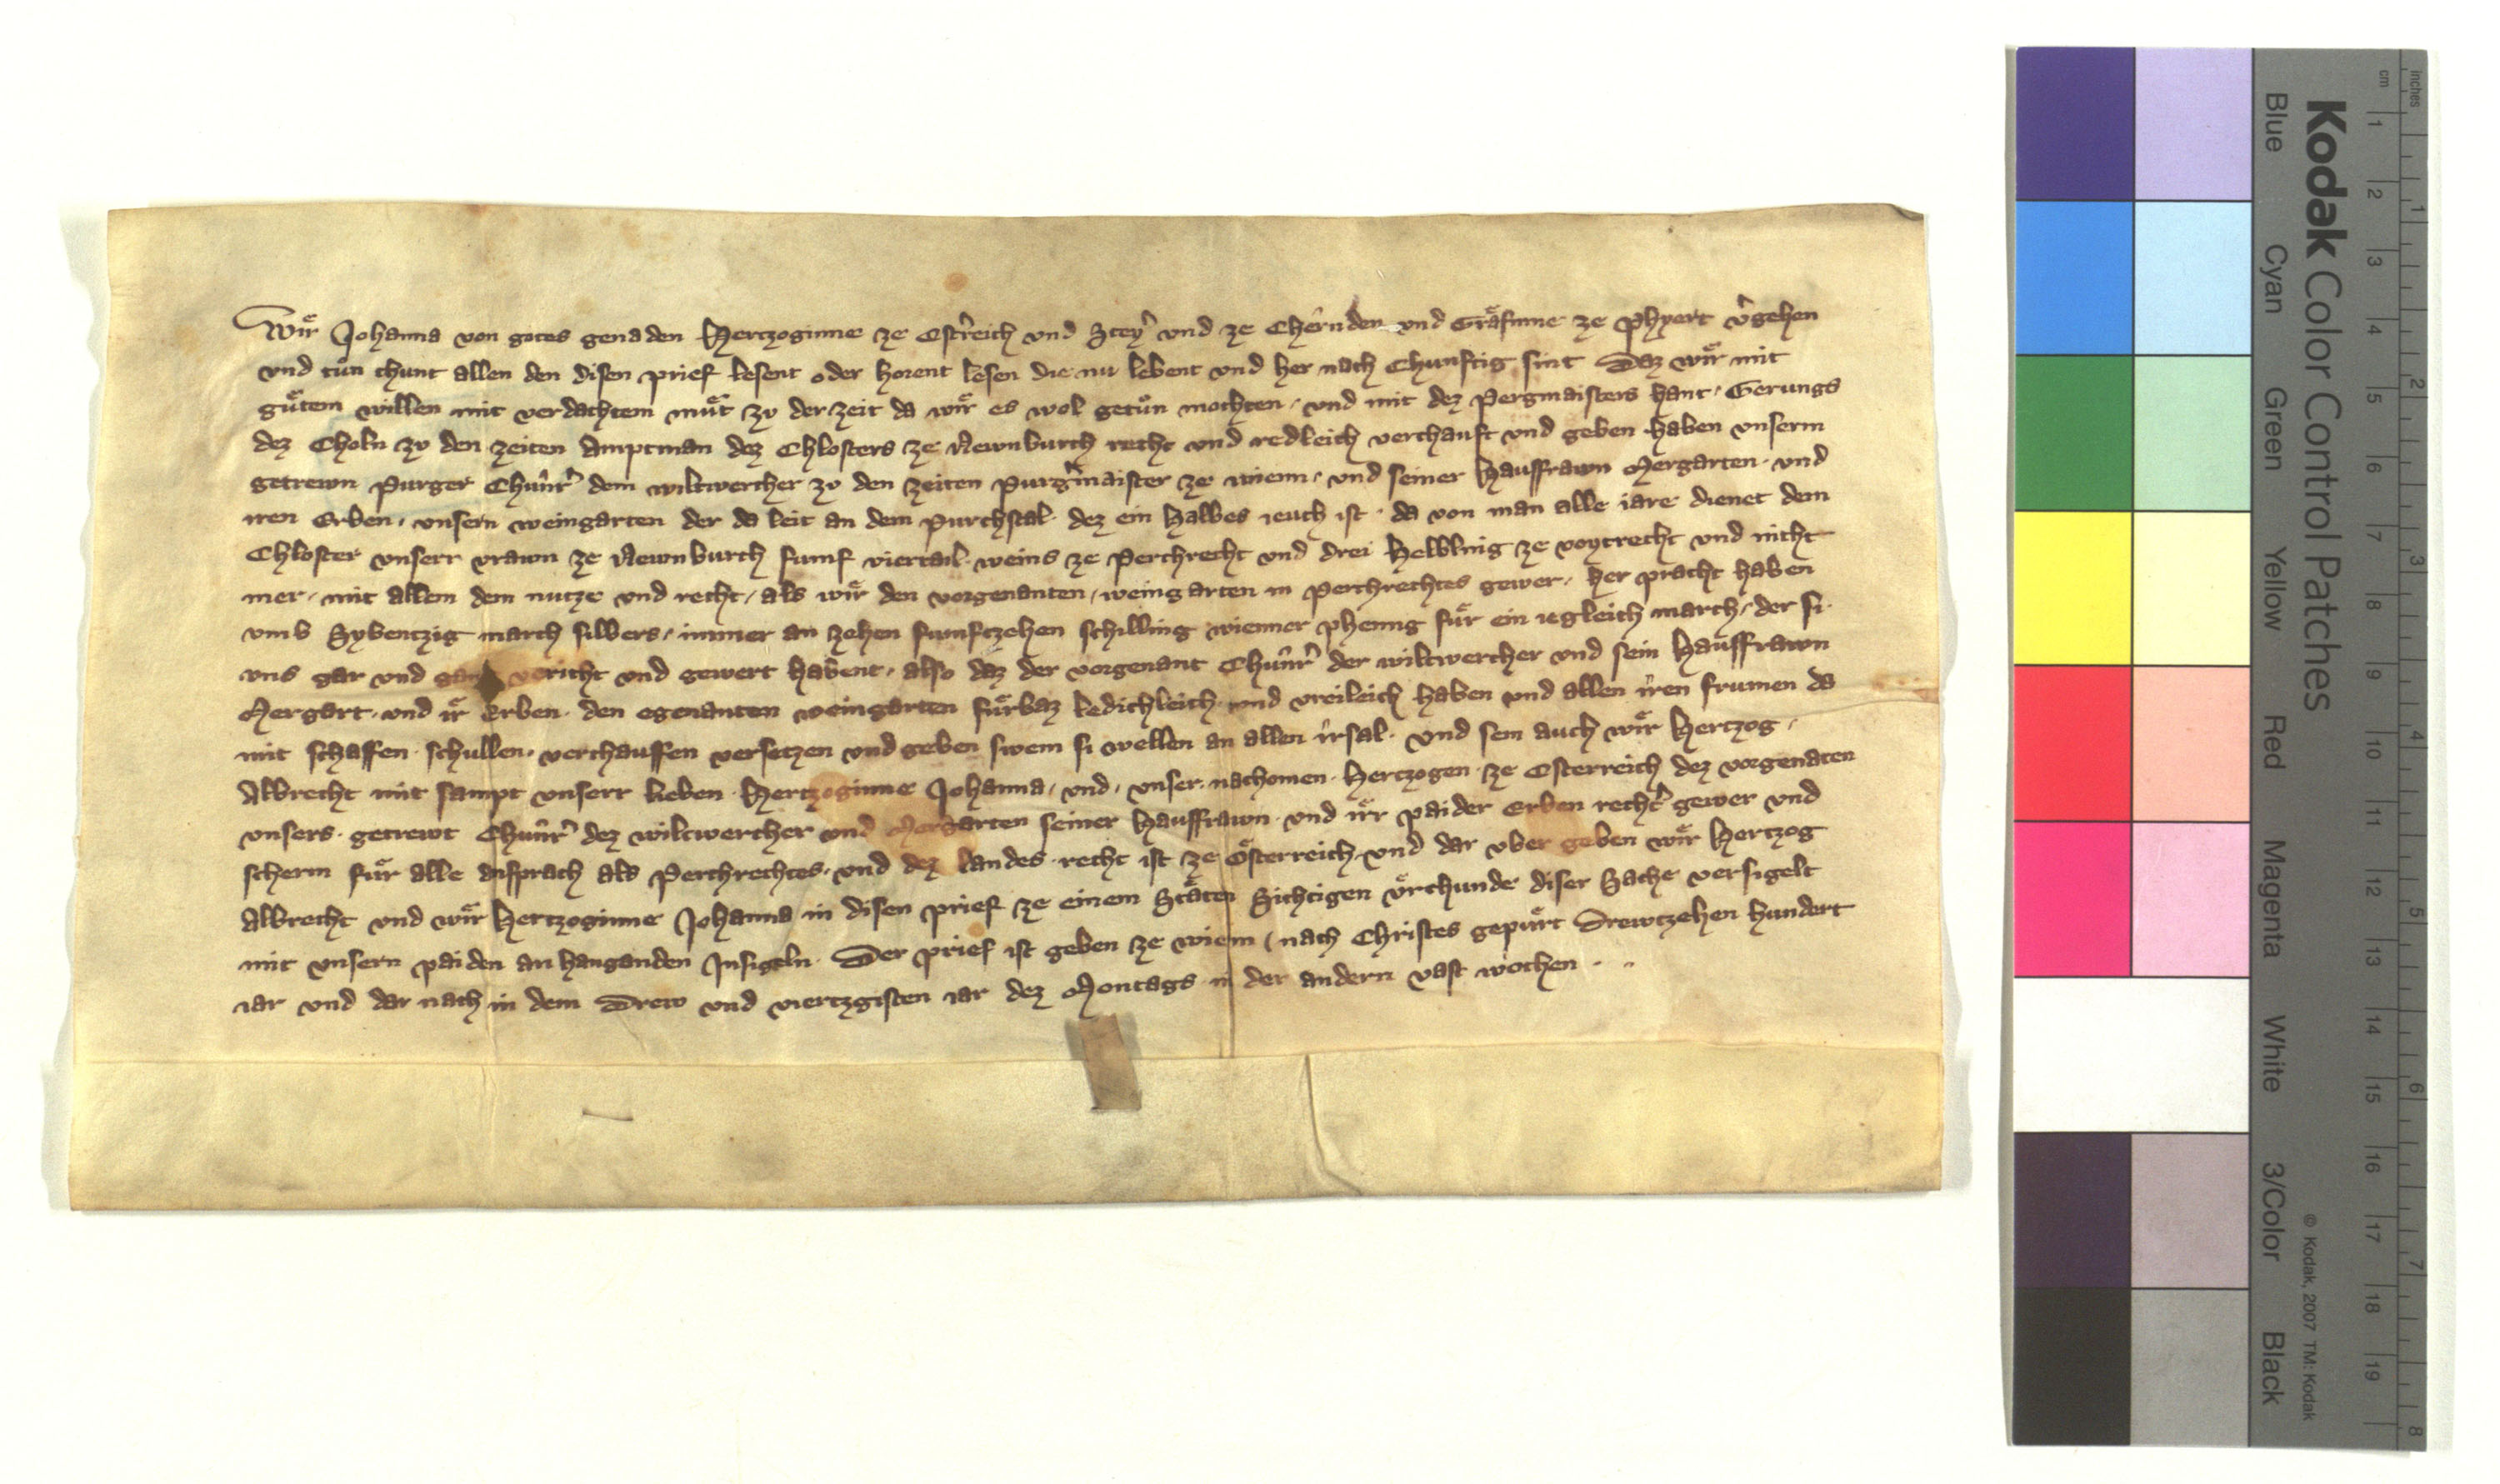 Wir Johanna von gotes genaden Hertzoginne ze Ostr̂eich vnd Steyr̂ vnd ze Chêrnden vnd Grêfinne ze Phyert v̂gehen
vnd tůn chunt allen den disen prief lesent oder horent lesen die nu lebent vnd her nach chunftig sint Daz wir mit
gůtem willen mit verdachtem můt zv der zeit da wir es wol getůn mochten, vnd mit dez Pergmaisters hant, Gerungs
dez Choln zv den zeiten Amptman dez Chlosters ze Newnburch recht vnd redleich verchauft vnd geben haben vnserm
getrewn Purger Chunr̂ dem wiltwercher zv den zeiten Purgr̂maister ze wienn, vnd seiner Hausfrawn Mergarten. vnd
iren Erben, vnsern weingarten der da leit an dem Purchstal. dez ein halbes ieuch ist, da von man alle iare dienet dem
Chloster vnserr vrawn ze Newnburch fumf viertail weins ze Perchrecht vnd drei Helbling ze voytrecht vnd nicht
mer, mit allem dem nutze vnd recht, als wir den vorgenanten, weingarten in Perchrechtes gewer, her pracht haben
vmb Sybentzig march silbers, immer an zehen fumftzehen schilling wienner phenig fůr ein iegleich march, der si
vns gar vnd vericht vnd gewert habent, also daz der vorgenant Chunr̂ der wiltwercher vnd sein Hausfrawn
Mergart. vnd ir Erben. den egenanten weingarten fůrbaz ledichleich vnd vreileich haben vnd allen iren frumen da
mit schaffen schullen, verchauffen versetzen vnd geben swem si wellen an allen irsal. vnd sein auch wir Hertzog,
Albrecht mit sampt vnserr lieben Hertzoginne Johanna, vnd, vnser nachomen Hertzogen ze Osterreich dez vorgenaten
vnsers. getrewt Chunr̂ dez wiltwercher vnd Mergarten seiner Hausfrawn. vnd irr paider Erben rechtr̂ gewer vnd
scherm fůr alle ansprach als Perchrechtes, vnd dez landes recht ist ze Österreich, vnd dar vber geben wir Hertzog
Albrecht vnd wir Hertzoginne Johanna in disen prief ze einem Stêten Sichtigen vrchunde diser Sache versigelt
mit vnsern paiden anhanganden Insigeln. Der prief ist geben ze wienn, nach Christes gepůrt Drewtzehen hundert
iar vnd dar nach in dem Drew vnd viertzgisten iar dez Montags in der andern vast wochen . ..
Kodak Color Control Patches
Blue Cyan Green Yellow Red Magenta White 3/Color Black
© Kodak, 2007 TM: Kodak
cm 1 2 3 4 5 6 7 8 9 10 11 12 13 14 15 16 17 18 19
inches 1 2 3 4 5 6 7 8